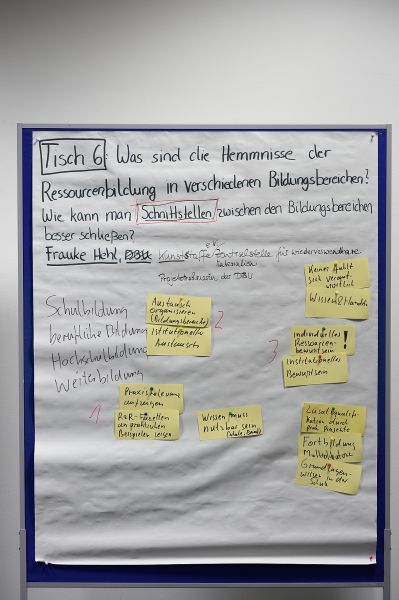 Tisch 6: Was sind die Hemmnisse der
Ressourcenbildung in verschiedenen Bildungsbereichen?
Wie kann man Schnittstellen zwischen den Bildungsbereichen
besser schließen?
Frauke Hehl, DBU Kunst-Stoffe e.V. Zentralstelle für wiederverwendbare
Materialien
des DBU
Schulbildung
berufliche Bildung
Hochschulbildung
Weiterbildung
Austausch
organisieren
(Bildungsbereiche)
Institutioneller
Austausch
2
Keiner fühlt
sich verant-
wortlich
Wissen & Handeln
3
Individuelles
Ressourcen-
bewusstsein
!
Institutionelles
Bewusstsein
1
Praxisrelevanz
aufzeigen
an praktischen
Beispielen zeigen
Wissen muss
nutzbar sein
Zusatzqualifi-
kation durch
Projekte
Fortbildung
Multiplikatoren
Grundlagen-
wissen in der
Schule